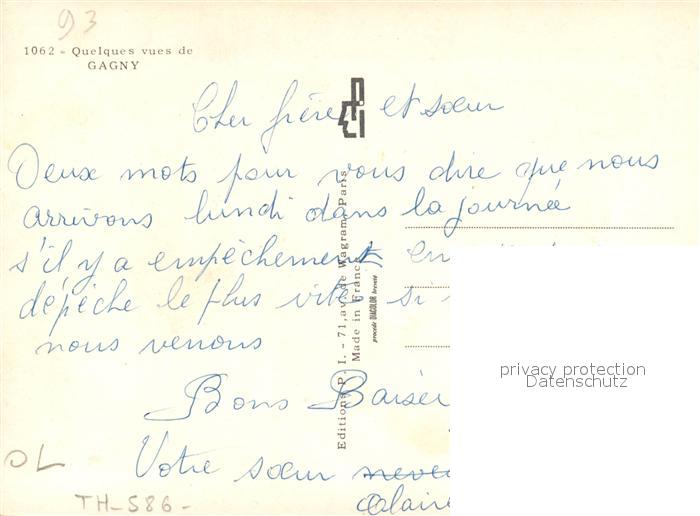 93
1062 - Quelques vues de
GAGNY
Cher frère et sœur
Deux mots pour vous dire que nous
arrivons lundi dans la journée
s'il y a empêchement
dépêche le plus vite si
nous venons
Bons Baiser
Votre sœur
Claire
OL
TH-586-
Editions P. I. - 71, av. de Wagram, Paris
Made in France
procédé DIACOLOR breveté
privacy protection
Datenschutz